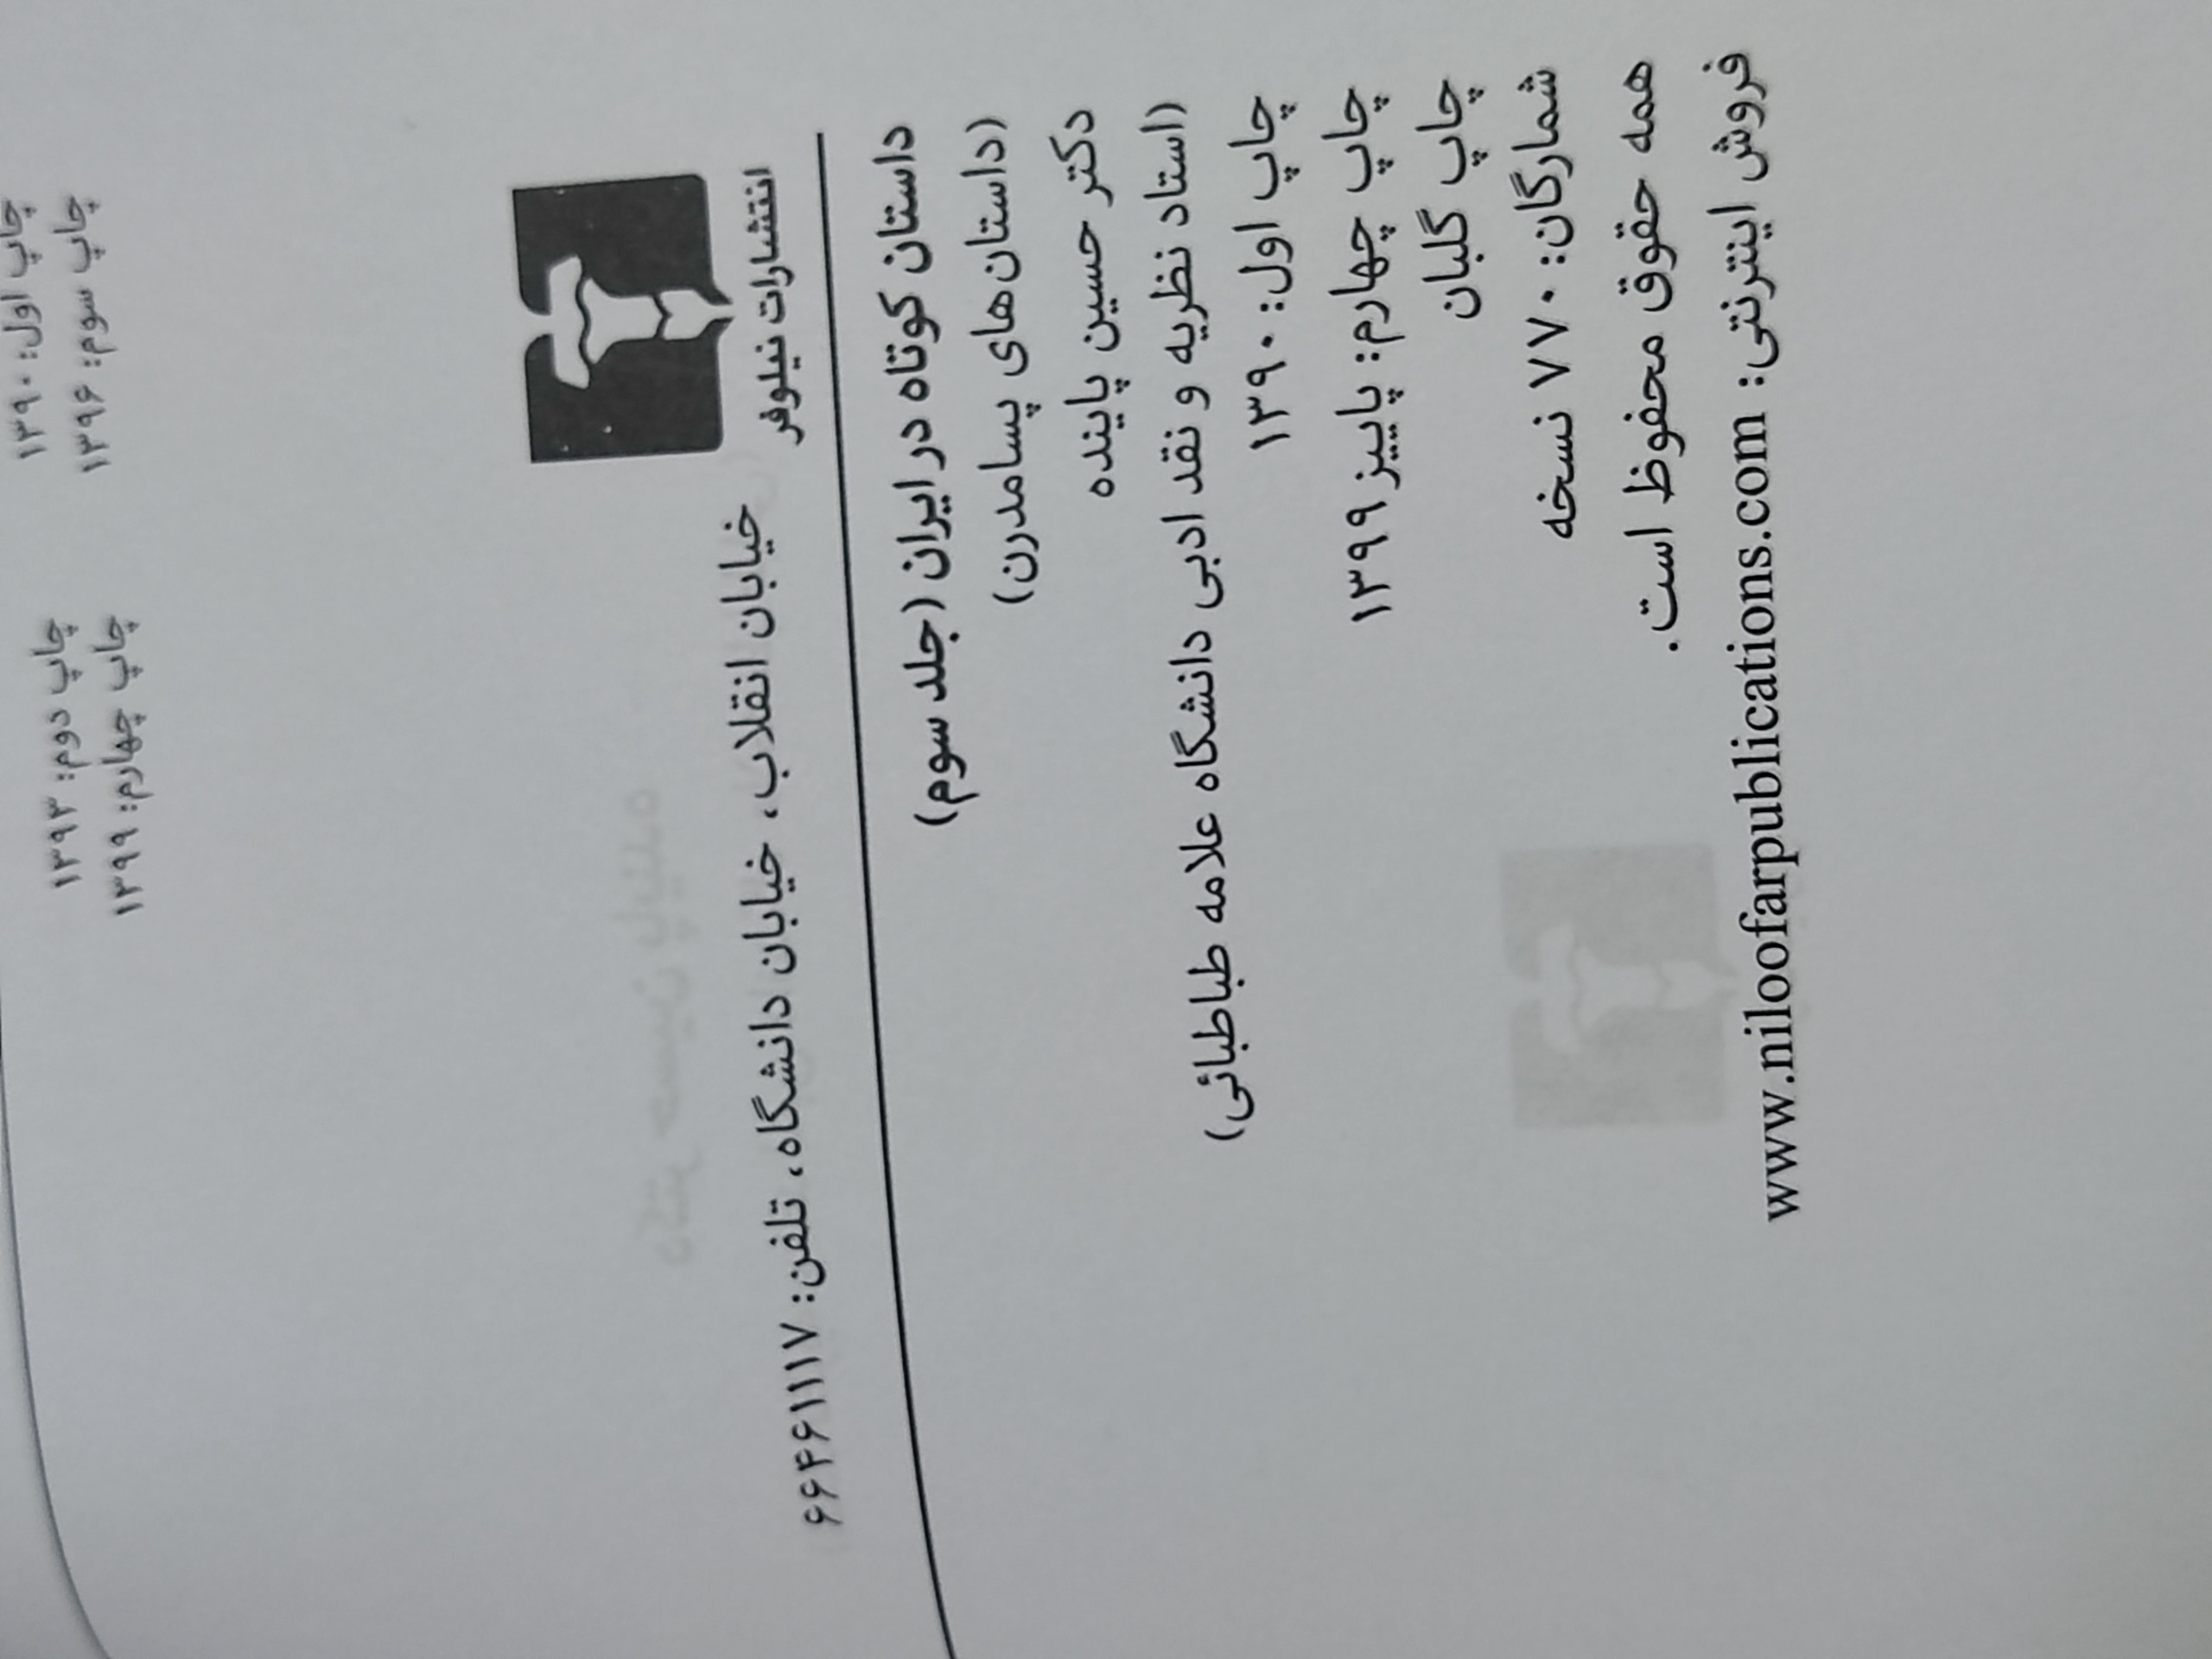 چاپ اول: ۱۳۹۰ چاپ دوم: ۱۳۹۳
چاپ سوم: ۱۳۹۶ چاپ چهارم: ۱۳۹۹
انتشارات نیلوفر خیابان انقلاب، خیابان دانشگاه، تلفن: ۶۶۴۶۱۱۱۷
داستان کوتاه در ایران (جلد سوم)
(داستان‌های پسامدرن)
دکتر حسین پاینده
(استاد نظریه و نقد ادبی دانشگاه علامه طباطبائی)
چاپ اول: ۱۳۹۰
چاپ چهارم: پاییز ۱۳۹۹
چاپ گلبان
شمارگان: ۷۷۰ نسخه
همه حقوق محفوظ است.
فروش اینترنتی: www.niloofarpublications.com